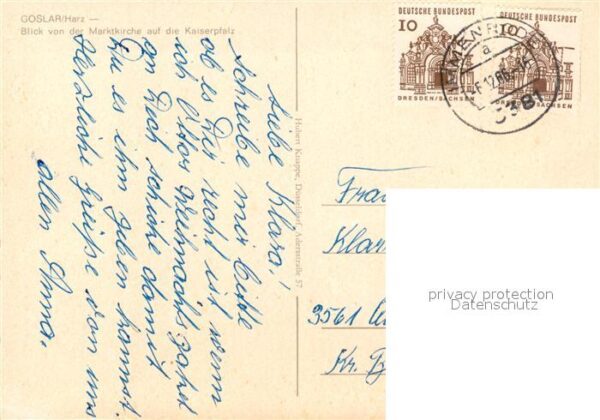 GOSLAR/Harz —
Blick von der Marktkirche auf die Kaiserpfalz
Liebe Klara!
Schreibe mir bitte
ob es Dir recht ist wenn
ich Ottos Weihnachtspaket
an Dich schicke damit
Du es ihm geben kannst.
Herzliche Grüße von uns
allen Anna.
Hubert Knappe, Düsseldorf, Adersstraße 57
10 DEUTSCHE BUNDESPOST
DRESDEN/SACHSEN
DEUTSCHE BUNDESPOST
DRESDEN/SACHSEN
IMMENRODE
a
3381
Frau
Klar
3561
Kr.
privacy protection
Datenschutz